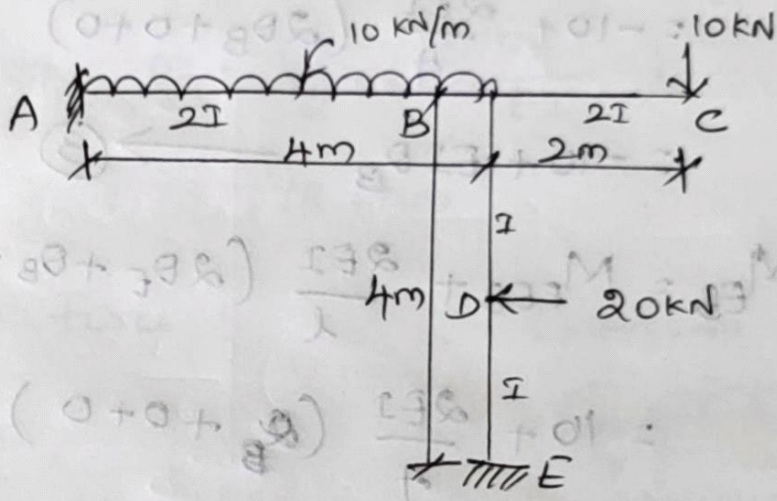 10 kN/m
10KN
A
2I
B
2I
C
4m
2m
I
4m
D
20KN
I
E